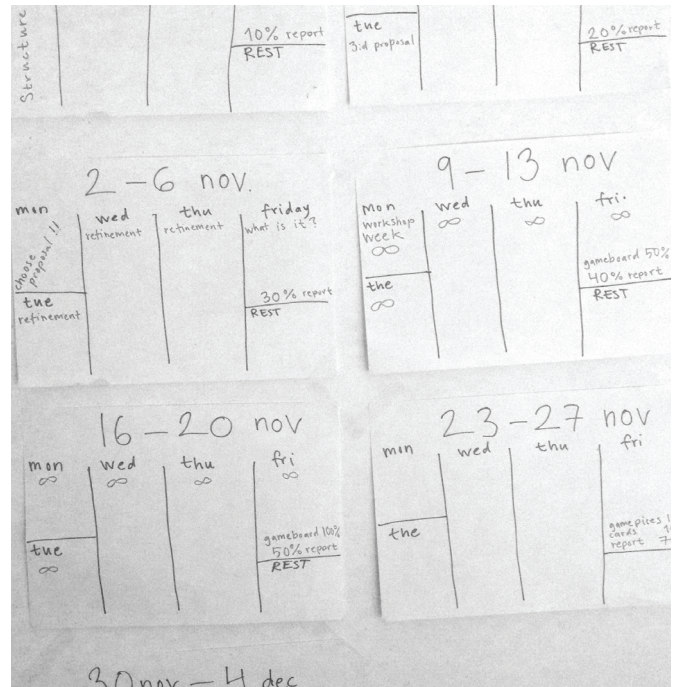 Structure
10% report
REST
tue
3:d proposal
20% report
REST
2 - 6 nov.
mon
choose
proposal !!
tue
refinement
wed
refinement
thu
refinement
friday
what is it?
30% report
REST
9 - 13 nov
Mon
workshop
week
∞
the
∞
wed
∞
thu
∞
fri.
∞
gameboard 50%
40% report
REST
16 - 20 nov
mon
∞
tue
∞
wed
∞
thu
∞
fri
∞
gameboard 100%
50% report
REST
23 - 27 nov
mon
the
wed
thu
fri
game pices
cards
report
30 nov - 4 dec